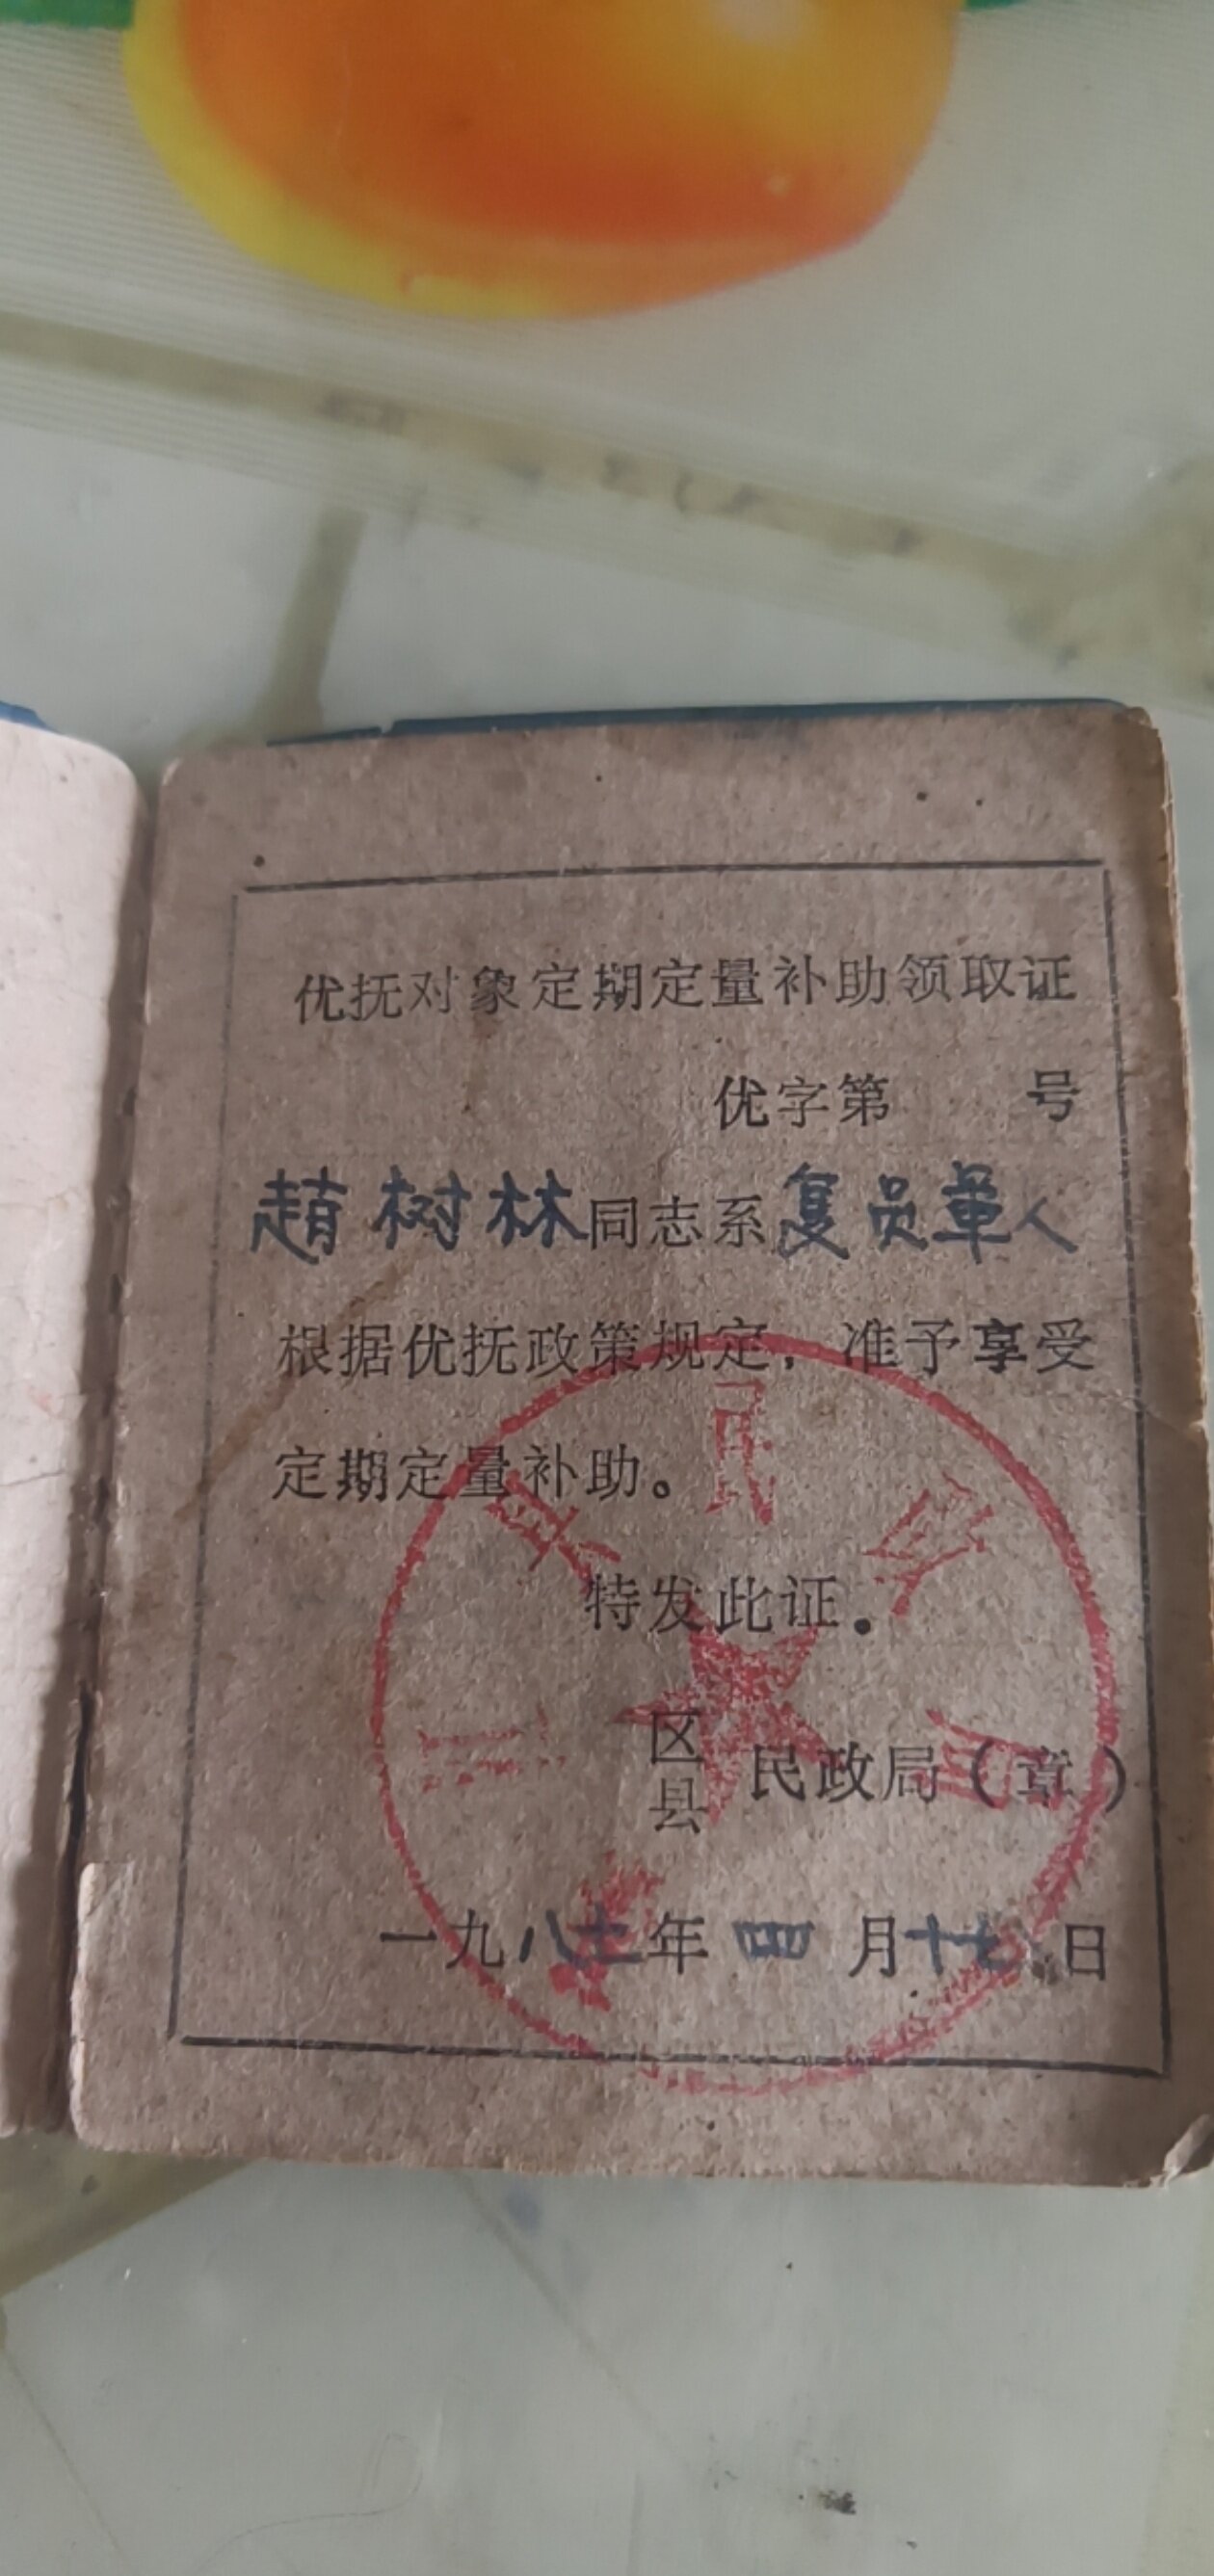 优抚对象定期定量补助领取证
优字第 号
趙树林同志系复员军人
根据优抚政策规定，准予享受
定期定量补助。
特发此证.
区
县 民政局（章）
一九八七年四月十七日
县民政局